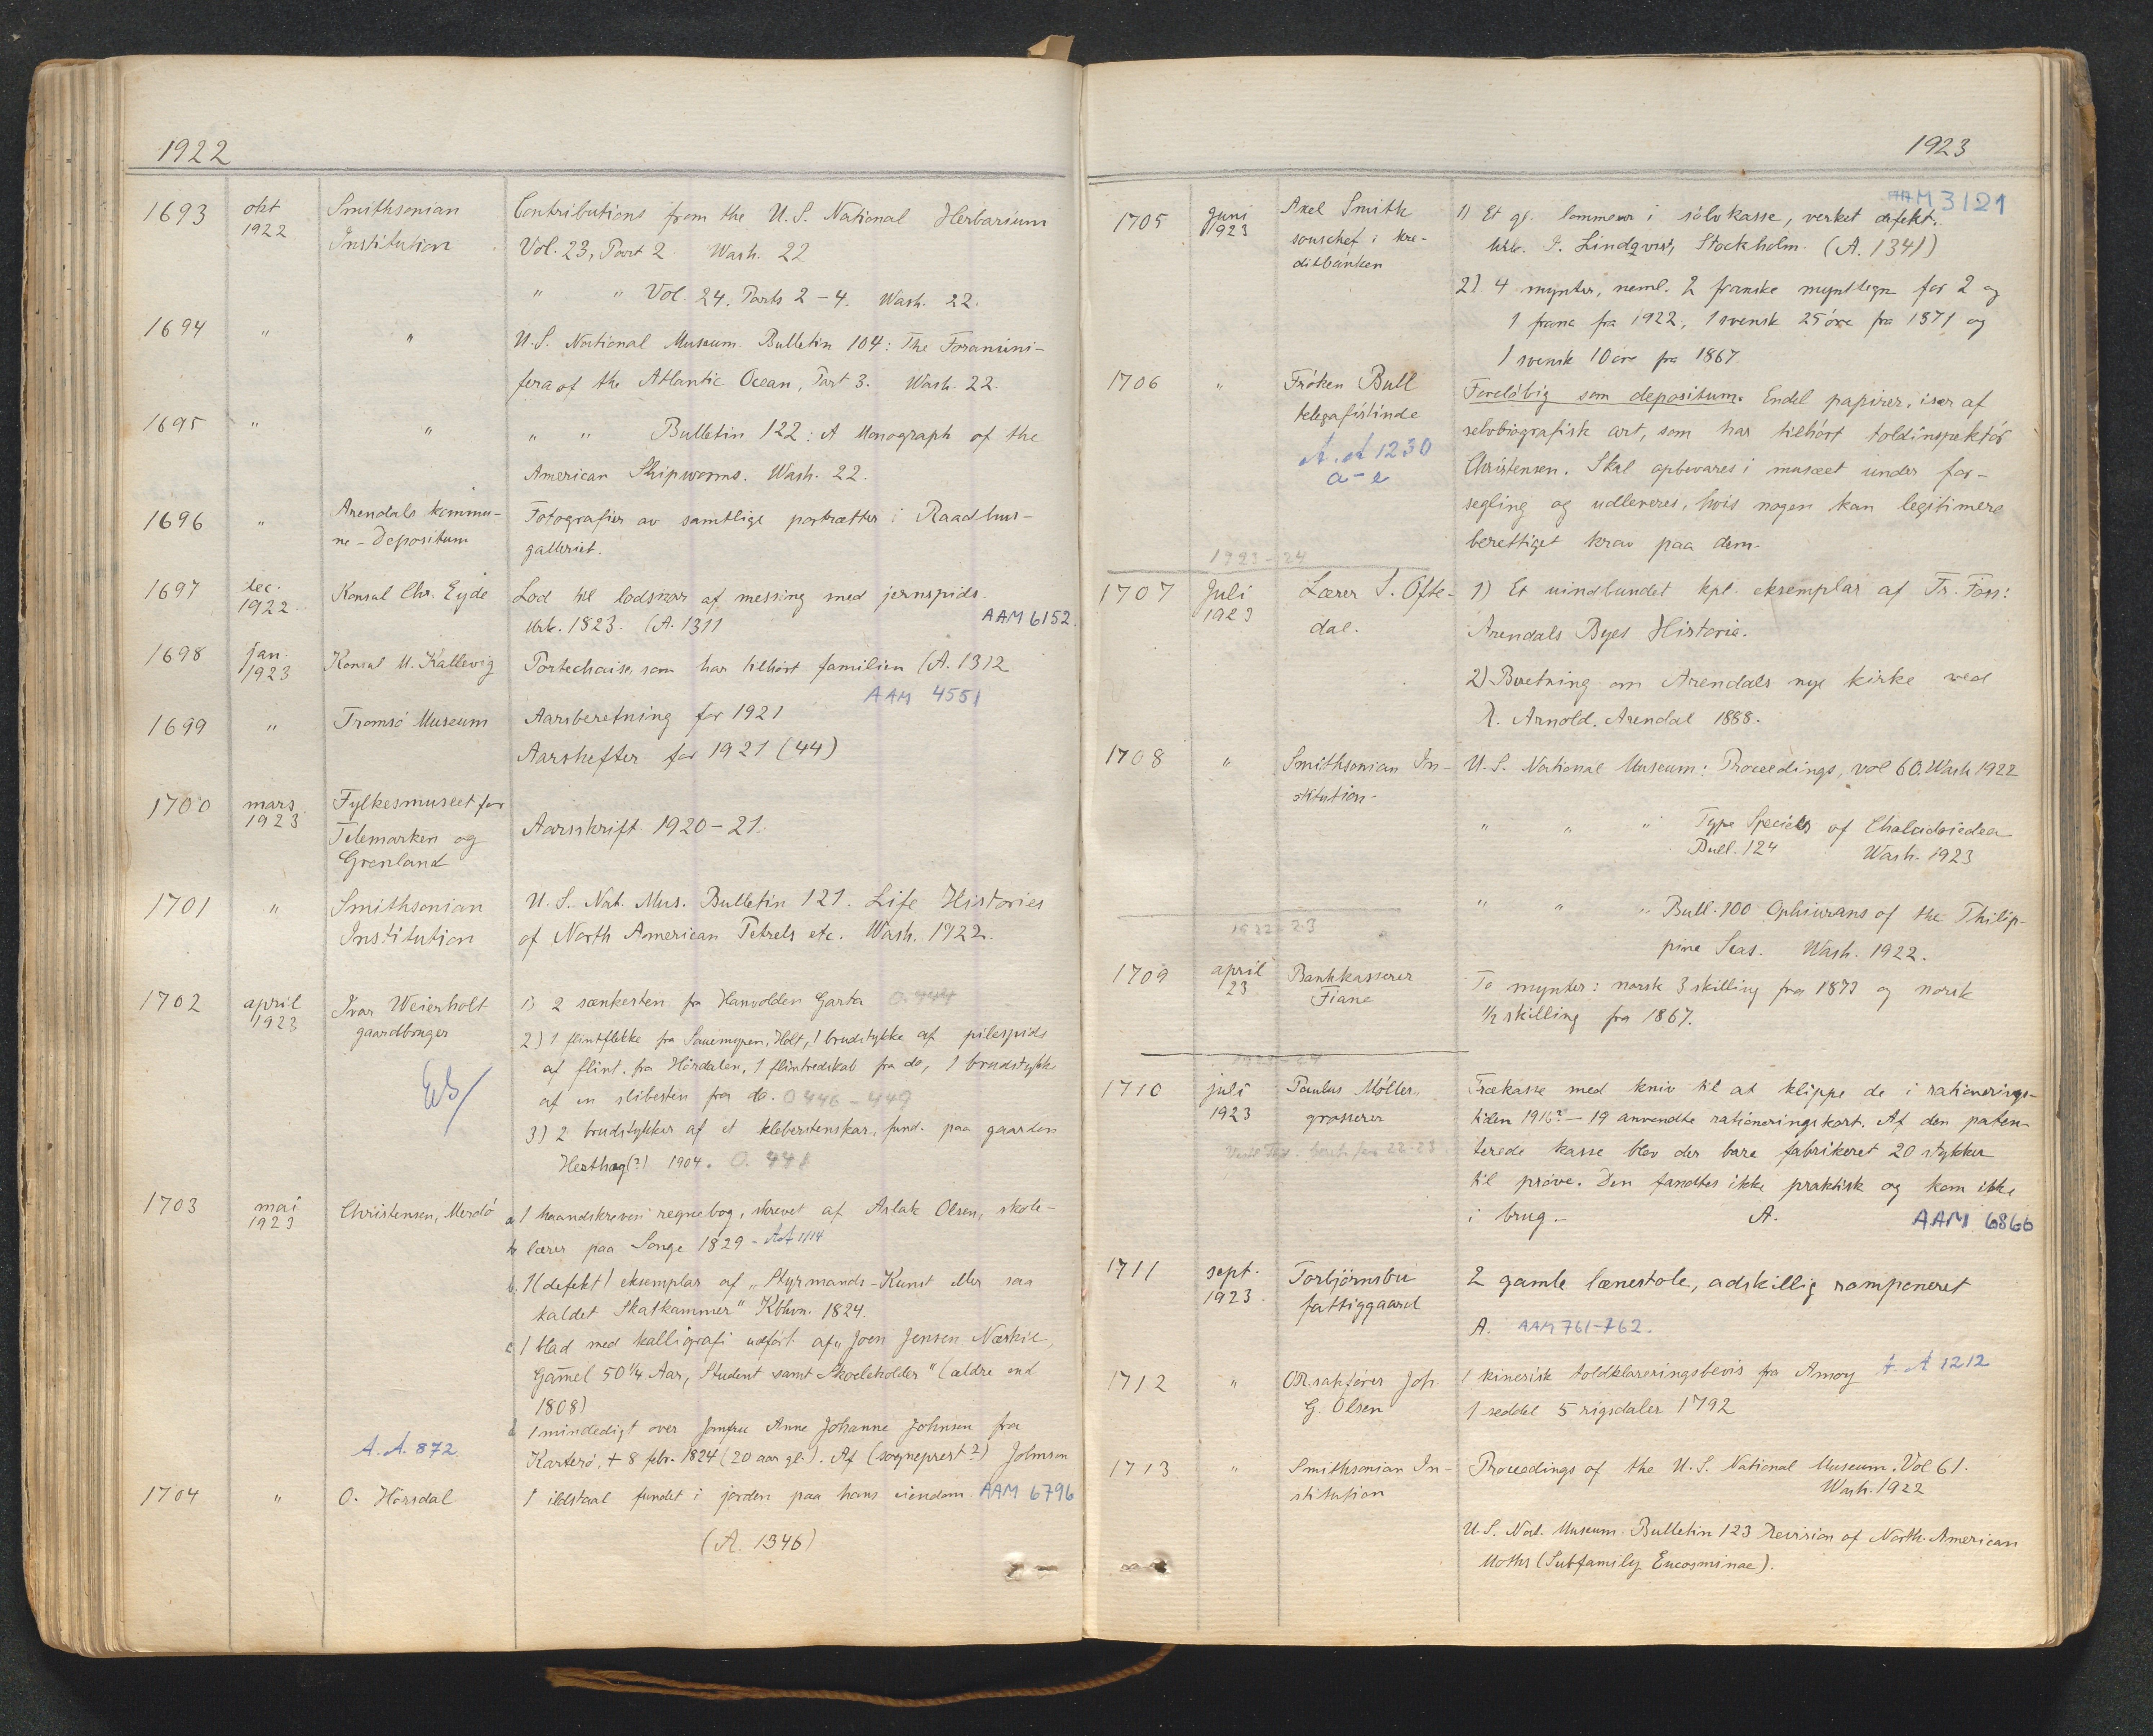 1922
1693 okt 1922 Smithsonian Institution Contributions from the U.S. National Herbarium
Vol. 23, Part 2. Wash. 22
" " Vol. 24, Parts 2-4. Wash. 22.
1694 " " U.S. National Museum Bulletin 104: The Foramini-
fera of the Atlantic Ocean, Part 3. Wash. 22.
1695 " " " " Bulletin 122: A Monograph of the
American Shipworms. Wash. 22.
1696 " Arendals kommu-
ne - Depositum
Fotografier av samtlige portrætter i Raadhus-
galleriet.
1697 dec. 1922 Konsul Chr. Eyde Lod til lodsnor af messing med jernspids.
Mrk. 1823. (A. 1311 AAM 6152.
1698 jan. 1923 Konsul M. Kallevig Portechaise, som har tilhørt familien (A. 1312
AAM 4551
1699 " Tromsø Museum Aarsberetning for 1921
Aarshefter for 1921 (44)
1700 mars 1923 Fylkesmuseet for
Telemarken og
Grenland
Aarsskrift 1920-21.
1701 " Smithsonian
Institution
U.S. Nat. Mus. Bulletin 121. Life Histories
of North American Petrels etc. Wash. 1922.
1702 april 1923 Ivar Weierholt
gaardbruger
1) 2 sænkesten fra Garta O. 444
2) 1 flintflekke fra Sauemyren, Holt, 1 brudstykke af pilespids
af flint, fra Hørdalen, 1 flintredskab fra do, 1 brudstykke
af en slibesten fra do. O 446 - 449
3) 2 brudstykker af et kleberstenskar, fund. paa gaarden
(?) 1904. O. 448
1703 mai 1923 Christensen, Merdø
a 1 haandskreven regnebog, skrevet af Aslak Olsen, skole-
lærer paa Songe 1829 - AA 1114
b. 1 (defekt) eksemplar af "Styrmands-Kunst eller saa
kaldet Skatkammer" Kbhvn. 1824.
c 1 blad med kalligrafi udført af "Joen Jensen
Gam̄el 50 1/4 Aar, Student samt Skoeleholder" (ældre end
1808)
d 1 mindedigt over Jomfru Anne Johanne Johnsen fra
, + 8 febr. 1824 (20 aar gl.). Af (sogneprest?) Johnson
A.A. 872
1704 " O. Hørsdal 1 ildstaal fundet i jorden paa hans eiendom AAM 6796
(A. 1346)
1923
1705 Juni 1923 Axel Smith
souschef i kre-
ditbanken
AAM 3121
1) Et gl. lommeur i sølvkasse, verket defekt.
Mrk. Lindqvist, Stockholm. (A. 1341)
2) 4 mynter, neml. 2 franske mynttegn for 2 og
1 franc fra 1922, 1 svensk 25 øre fra 1871 og
1 svensk 10 øre fra 1867
1706 " Frøken Bull
telegrafistinde
A.A 1230
a-e
Foreløbig som depositum. Endel papirer, især af
selvbiografisk art, som har tilhørt toldinspektør
Christensen. Skal opbevares i museet under for-
segling og udleveres, hvis nogen kan legitimere
berettiget krav paa dem.
1923-24
1707 Juli 1923 Lærer S. Ofte-
dal.
1) Et uindbundet kpl. eksemplar af Fr. Foss:
Arendals Byes Historie.
2) Beretning om Arendals nye kirke ved
Arnold. Arendal 1888.
1708 " Smithsonian In-
stitution-
U.S. National Museum: Proceedings, vol 60. Wash 1922
" " " Type Species of Chalcidoidea
Bull. 124 Wash. 1923
" " " Bull. 100 Ophiurans of the Philip-
pine Seas. Wash. 1922.
1922-23
1709 april 23 Bankkasserer
Fiane
To mynter: norsk 3 skilling fra 1873 og norsk
1/2 skilling fra 1867.
1923-24
1710 juli 1923 Paulus Møller,
grosserer
Trækasse med kniv til at klippe de i rationerings-
tiden 1916?-19 anvendte rationeringskort. Af den paten-
terede kasse blev der bare fabrikeret 20 stykker
til prøve. Den fandtes ikke praktisk og kom ikke
i brug.- A. AAM 6866
1711 sept. 1923. Torbjørnsbu
fattiggaard
2 gamle lænestole, adskillig ramponeret
A. AAM 761-762.
1712 " O.R.sakfører Joh.
G. Olsen
1 kinesisk toldklareringsbevis fra Amoy A.A 1212
1 seddel 5 rigsdaler 1792
1713 " Smithsonian In-
stitution
Proceedings of the U.S. National Museum. Vol 61.
Wash. 1922
U.S. Nat. Museum. Bulletin 123 Revision of North-American
Moths (Subfamily Eucosminae).